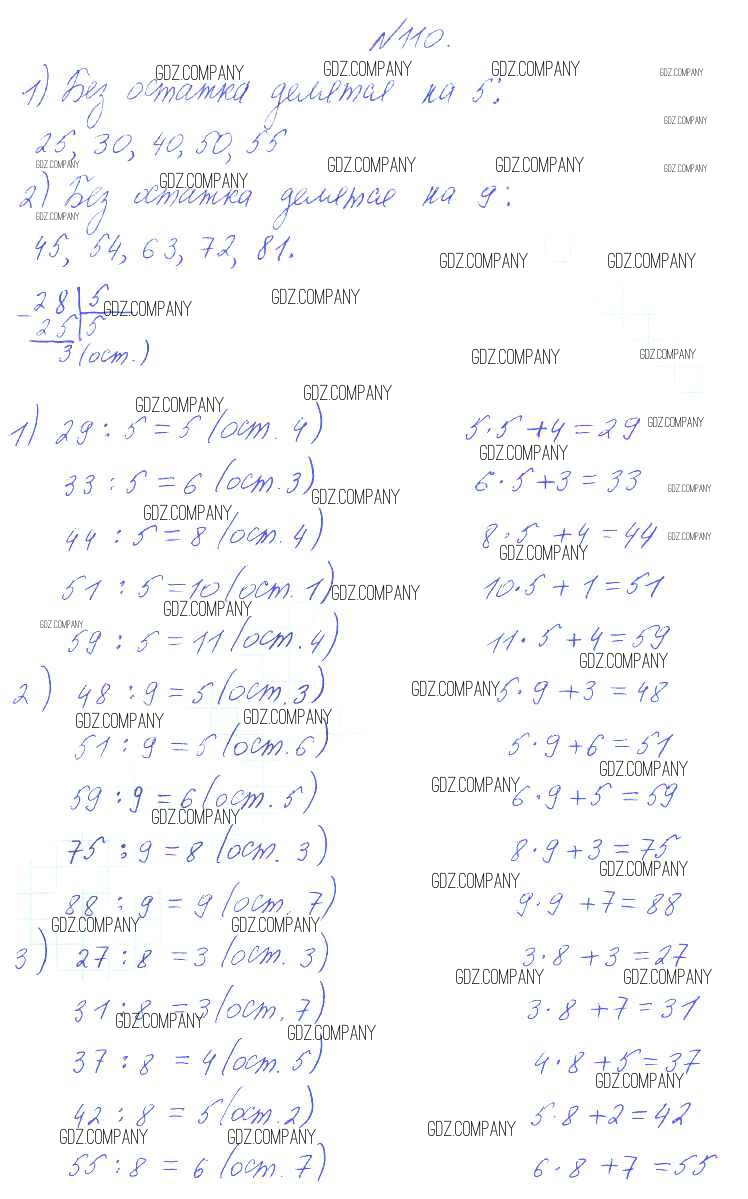 №110.
1) Без остатка делятся на 5:
25, 30, 40, 50, 55
2) Без остатка делятся на 9:
45, 54, 63, 72, 81.
- 28 | 5
25 | 5
3 (ост.)
1) 29 : 5 = 5 (ост. 4) 5·5 + 4 = 29
33 : 5 = 6 (ост. 3) 6·5 + 3 = 33
44 : 5 = 8 (ост. 4) 8·5 + 4 = 44
51 : 5 = 10 (ост. 1) 10·5 + 1 = 51
59 : 5 = 11 (ост. 4) 11·5 + 4 = 59
2) 48 : 9 = 5 (ост. 3) 5·9 + 3 = 48
51 : 9 = 5 (ост. 6) 5·9 + 6 = 51
59 : 9 = 6 (ост. 5) 6·9 + 5 = 59
75 : 9 = 8 (ост. 3) 8·9 + 3 = 75
88 : 9 = 9 (ост. 7) 9·9 + 7 = 88
3) 27 : 8 = 3 (ост. 3) 3·8 + 3 = 27
31 : 8 = 3 (ост. 7) 3·8 + 7 = 31
37 : 8 = 4 (ост. 5) 4·8 + 5 = 37
42 : 8 = 5 (ост. 2) 5·8 + 2 = 42
55 : 8 = 6 (ост. 7) 6·8 + 7 = 55
GDZ.COMPANY